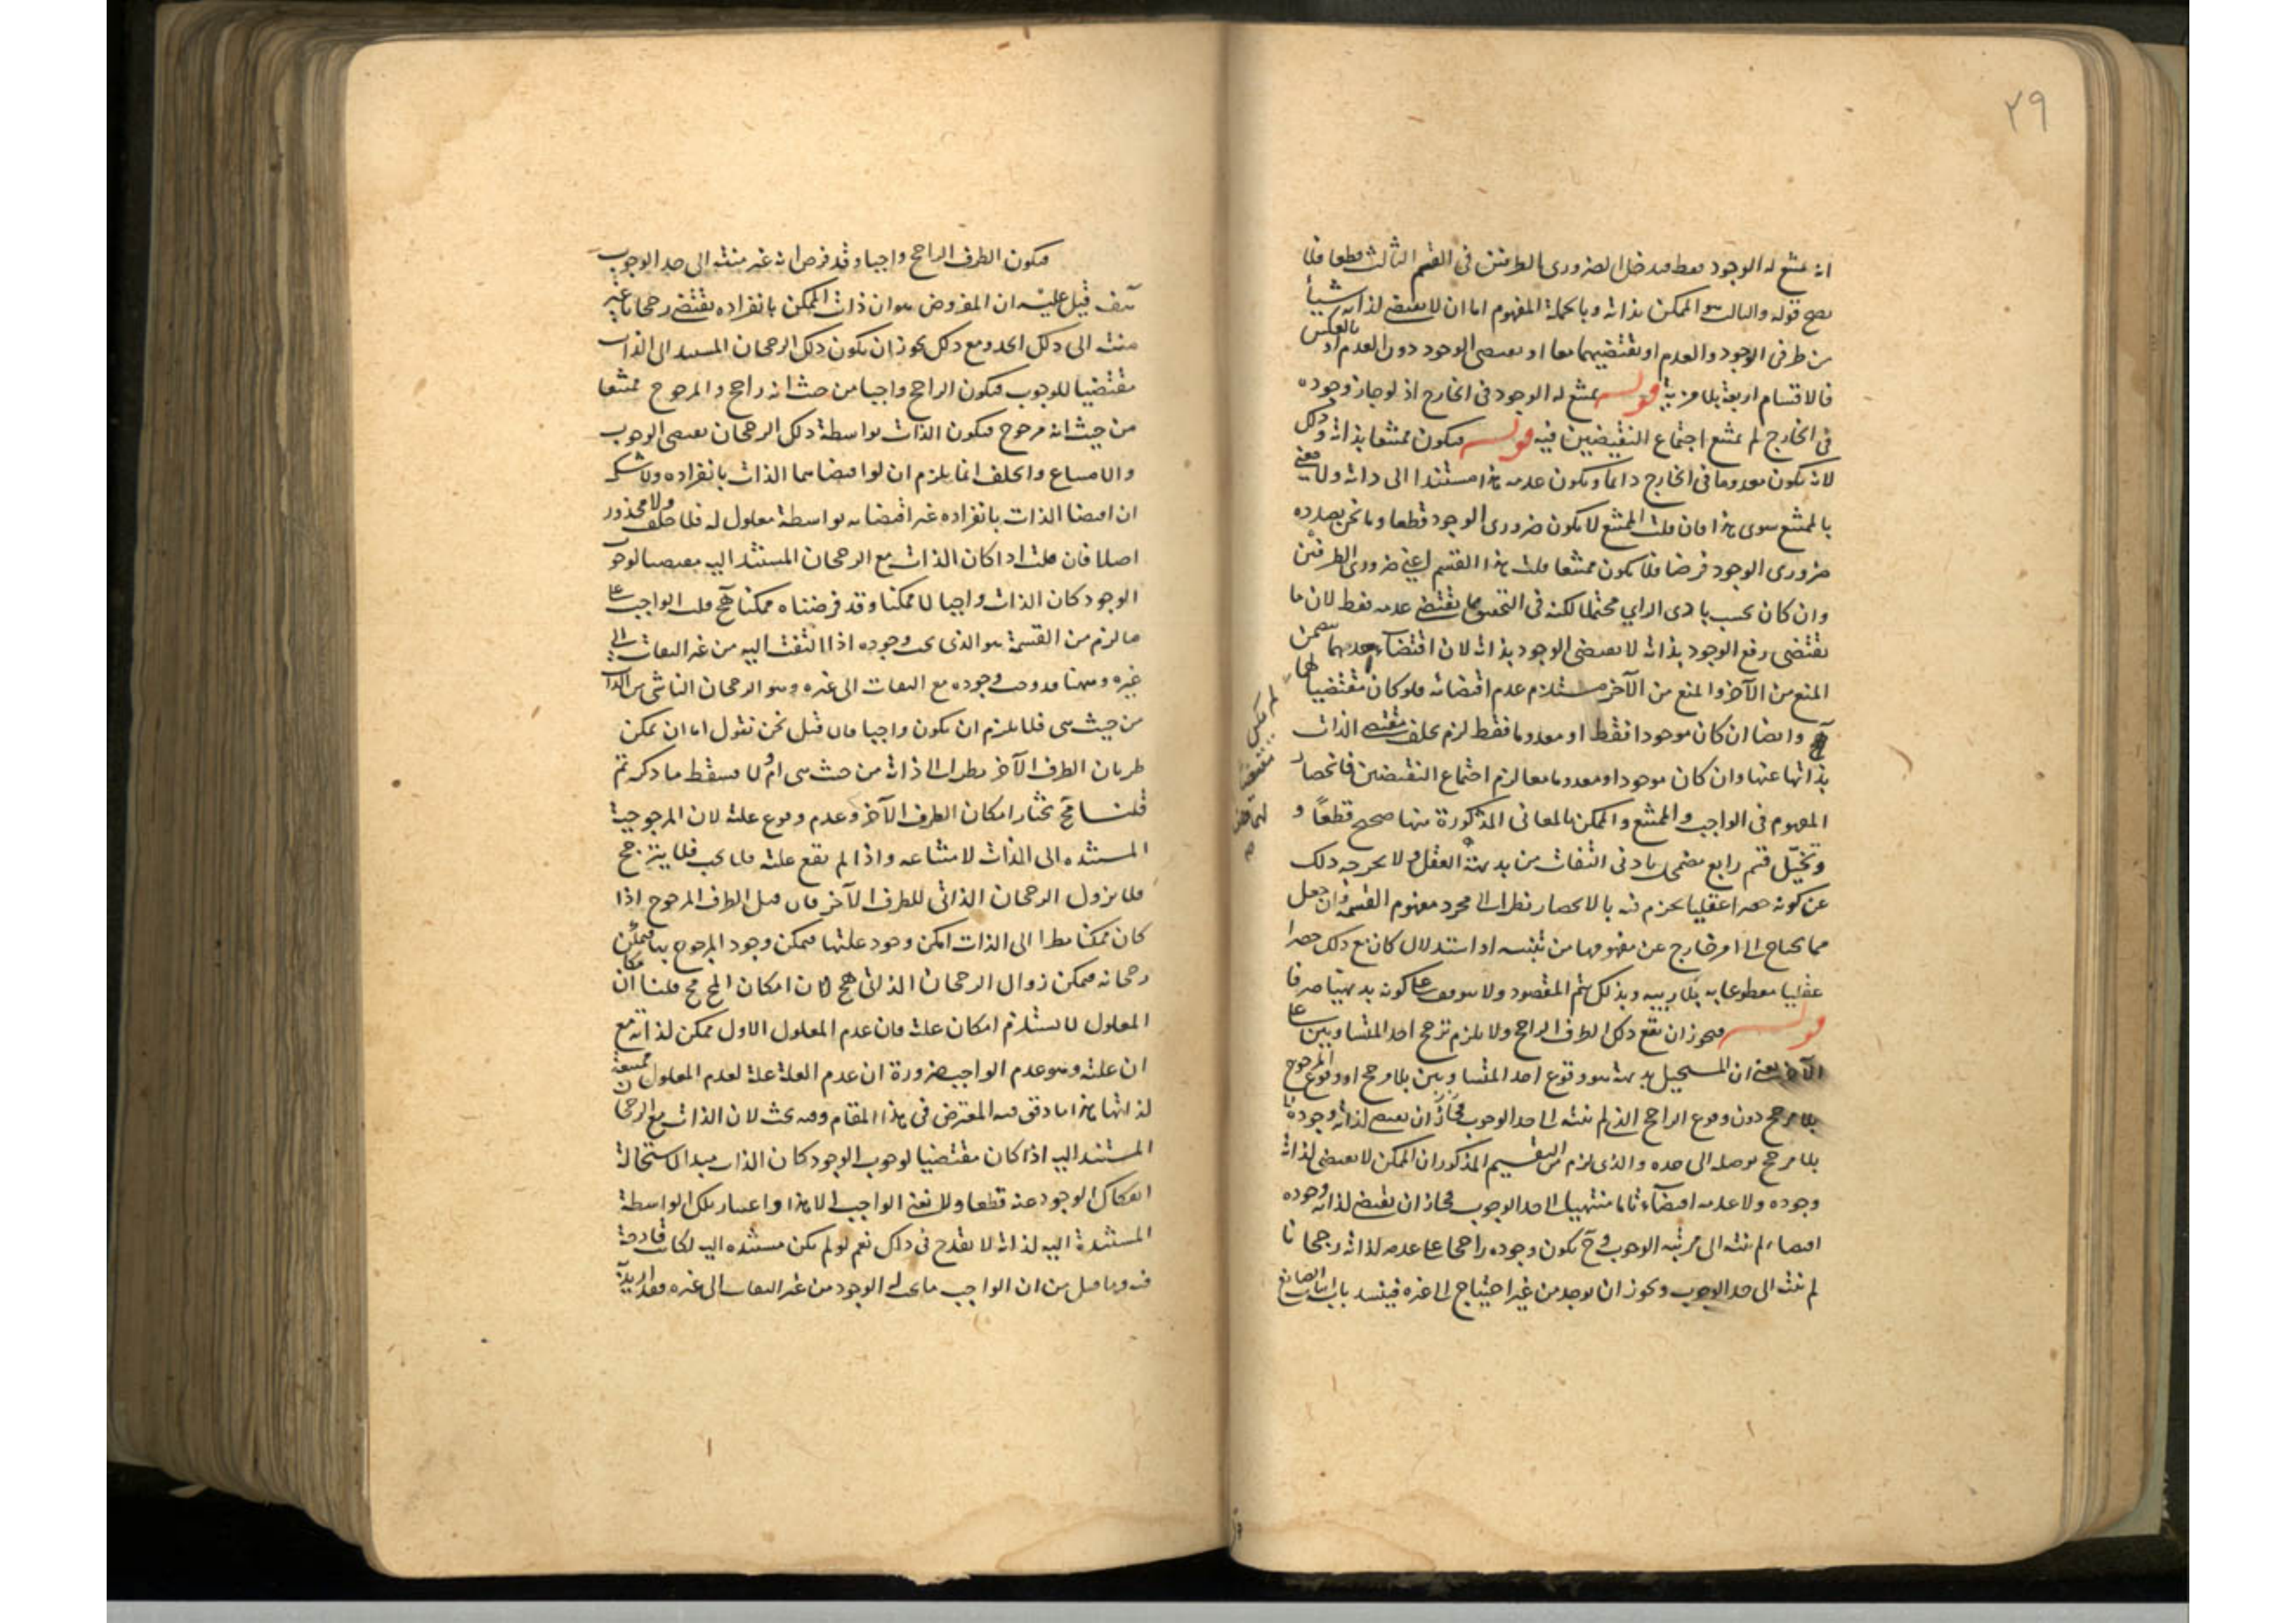 ٢٩
انه يمتنع له الوجود فقط فيدخل الضرورى بالطرفين فى القسم الثالث قطعا فلا
يصح قوله والثالث هو الممكن بذاته وبالجملة المفهوم اما ان لا يقتضى لذاته شيئا
من طرفى الوجود والعدم او يقتضيهما معا او يقتضى الوجود دون العدم او بالعكس
فالاقسام اربعة بلا مزية قوله يمتنع له الوجود فى الخارج اذ لو جاز وجوده
فى الخارج لم يمتنع اجتماع النقيضين فيه قوله فيكون ممتنعا بذاته وذلك
لانه يكون معدوما فى الخارج دائما ويكون عدمه هذا مستندا الى ذاته ولا معنى
بالممتنع سوى هذا فان قلت الممتنع لا يكون ضرورى الوجود قطعا وما نحن بصدده
ضرورى الوجود فرضا فلا يكون ممتنعا قلت هذا القسم اعنى ضرورى الطرفين
وان كان بحسب بادى الراى محتملا لكنه فى التحقيق مما يقتضى عدمه فقط لان ما
يقتضى رفع الوجود بذاته لا يقتضى الوجود بذاته لان اقتضاء احدهما يتضمن
المنع من الآخر والمنع من الآخر يستلزم عدم اقتضائه فلو كان مقتضيا لهما
لم يكن مقتضيا لهما هف
وايضا ان كان موجودا فقط او معدوما فقط لزم تخلف مقتضى الذات
بذاتها عنها وان كان موجودا ومعدوما معا لزم اجتماع النقيضين فانحصار
المفهوم فى الواجب والممتنع والممكن بالمعانى المذكورة منها صحيح قطعا و
وتخيل قسم رابع مضمحل بادنى التفات من بديهة العقل ولا يخرجه ذلك
عن كونه حصرا عقليا يجزم فيه بالانحصار نظرا الى مجرد مفهوم القسمة وان جعل
مما يحتاج الى امر خارج عن مفهومها من تنبيه او استدلال كان مع ذلك حصرا
عقليا مقطوعا به بلا ريبة وبذلك يتم المقصود ولا يتوقف على كونه بديهيا صرفا
قوله فيجوز ان يقع ذلك الطرف الراجح ولا يلزم ترجح احد المتساويين على
الآخر يعنى ان المستحيل بديهة هو وقوع احد المتساويين بلا مرجح او وقوع المرجوح
بلا مرجح دون وقوع الراجح الذى لم ينته الى حد الوجوب فجاز ان يقتضى لذاته وجوده
بلا مرجح يوصله الى حده والذى لزم من التقسيم المذكور ان الممكن لا يقتضى لذاته
وجوده ولا عدمه اقتضاء تاما منتهيا الى حد الوجوب فجاز ان يقتضى لذاته وجوده
اقتضاء لم ينته الى مرتبة الوجوب وح يكون وجوده راجحا على عدمه لذاته رجحانا
لم ينته الى حد الوجوب ويجوز ان يوجد من غير احتياج الى غيره فينسد باب اثبات الصانع
فيكون الطرف الراجح واجبا وقد فرض انه غير منته الى حد الوجوب
هف قيل عليه ان المفروض هو ان ذات الممكن بانفراده يقتضى رجحانا غير
منته الى ذلك الحد ومع ذلك يجوز ان يكون ذلك الرجحان المستند الى الذات
مقتضيا للوجوب فيكون الراجح واجبا من حيث انه راجح والمرجوح ممتنعا
من حيث انه مرجوح فيكون الذات بواسطة ذلك الرجحان يقتضى الوجوب
والامتناع والخلف انما يلزم ان لو اقتضاهما الذات بانفراده ولا شك
ان اقتضا الذات بانفراده غير اقتضائه بواسطة معلول له فلا خلف ولا محذور
اصلا فان قلت اذا كان الذات مع الرجحان المستند اليه مقتضيا لوجوب
الوجود كان الذات واجبا لا ممكنا وقد فرضناه ممكنا هف قلت الواجب على
ما لزم من القسمة هو الذى يجب وجوده اذا التفت اليه من غير التفات الى
غيره وههنا قد وجب وجوده مع التفات الى غيره وهو الرجحان الناشى من الذات
من حيث هى فلا يلزم ان يكون واجبا فان قيل نحن نقول اما ان يمكن
طريان الطرف الآخر نظرا الى ذاته من حيث هى ام لا فسقط ما ذكرتم
قلنا نختار امكان الطرف الآخر وعدم وقوع علته لان المرجوحية
المستنده الى الذات لامتناعه واذا لم يقع علته فلا يجب فلا يترجح
فلا يزول الرجحان الذاتى للطرف الآخر فان قيل الطرف المرجوح اذا
كان ممكنا نظرا الى الذات امكن وجود علتها فيمكن وجود المرجوح بها فيمكن
رجحانه فيمكن زوال الرجحان الذاتى هف لان امكان المح مح قلنا امكان
المعلول لا يستلزم امكان علته فان عدم المعلول الاول ممكن لذاته مع
ان علته وهو عدم الواجب ضرورة ان عدم العلة علة لعدم المعلول ممتنعة
لذاتها هذا ما دقق فيه المعترض فى هذا المقام وفيه بحث لان الذات مع الرجحان
المستند اليه اذا كان مقتضيا لوجوب الوجود كان الذات مبدا لاستحالة
انفكاك الوجود عنه قطعا ولا نعنى الواجب الا هذا واعتبار تلك الواسطة
المستندة اليه لذاته لا يقدح فى ذلك نعم لو لم يكن مستنده اليه لكانت قادحة
فيه وما قيل من ان الواجب ما يجب له الوجود من غير التفات الى غيره فقد اريد به